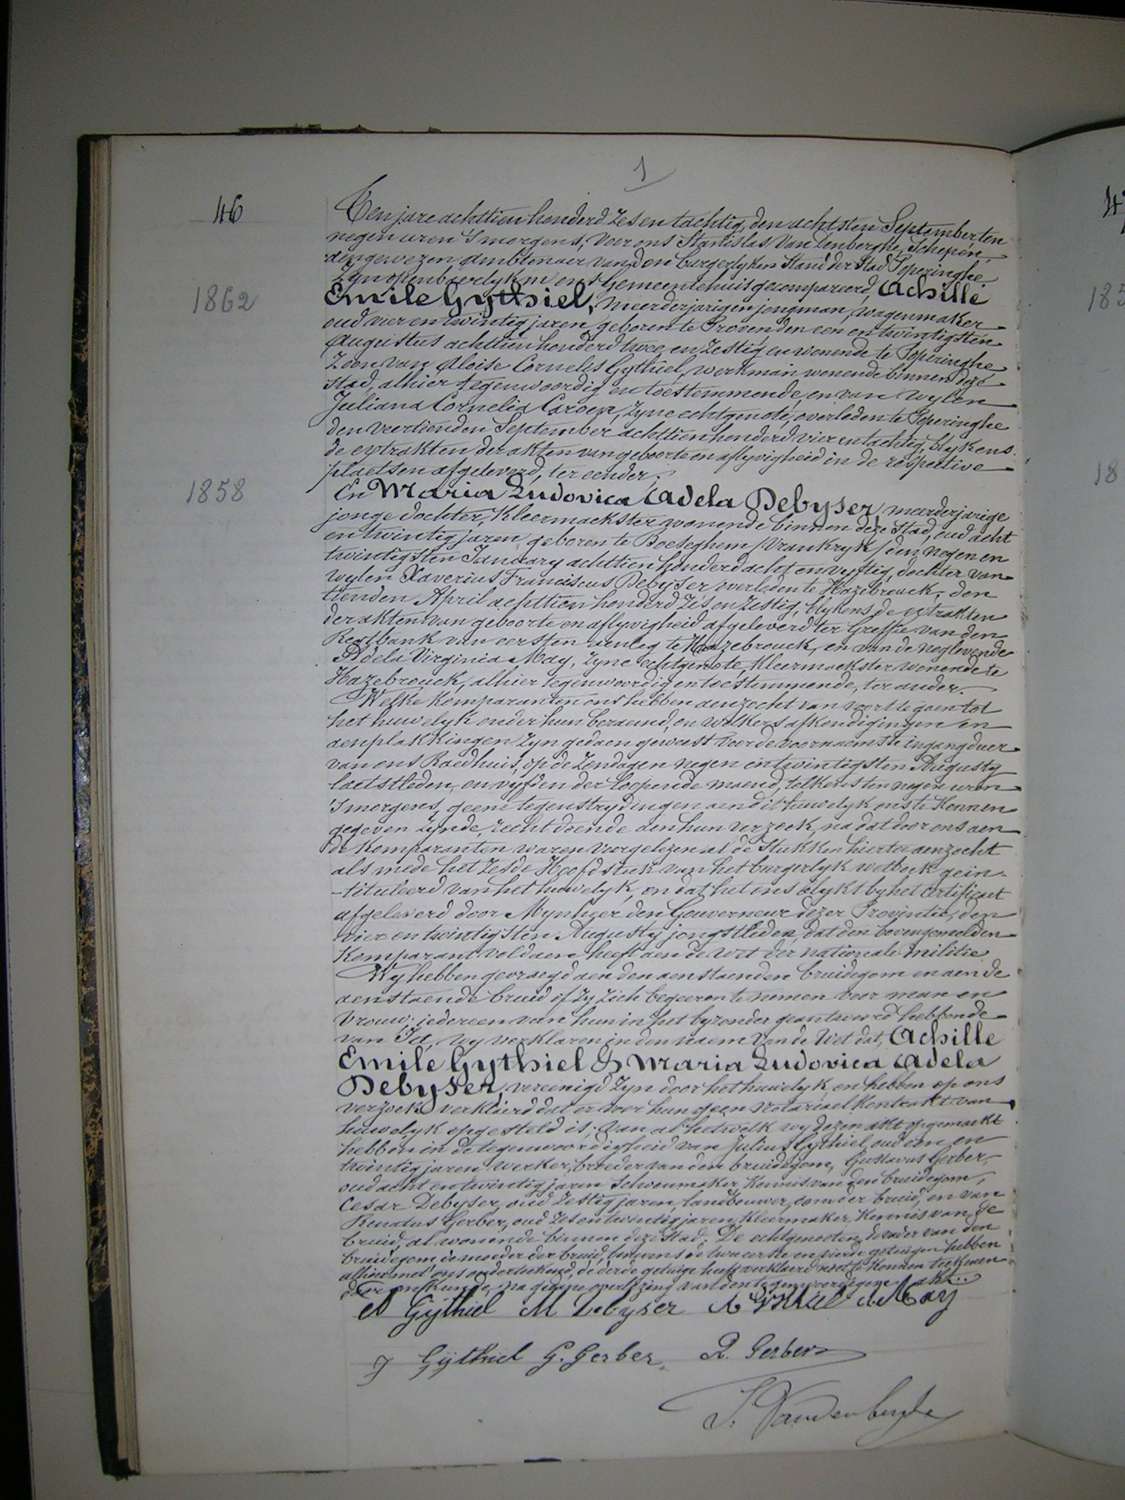 1
46
Ten jare achttien honderd zes en tachtig, den achtsten September, ten
negen uren 's morgens, voor ons Stanislas Van denberghe, Schepen,
aengewezen Ambtenaer van den burgerlyken Stand der Stad Poperinghe
zyn openbaerlyk in ons Gemeentehuis gecompareerd, Achille
1862
Emile Gythiel, meerderjarigen jongman, wagenmaker
oud vier en twintig jaren, geboren te Proven den een en twintigsten
Augustus achttien honderd twee en zestig en wonende te Poperinghe
Zoon van Aloise Cornelis Gythiel, werkman wonende binnen deze
stad, alhier tegenwoordig en toestemmende, en van wylen
Juliana Cornelia Caroen, zyne echtgenote, overleden te Poperinghe
den veertienden September achttien honderd vier en tachtig, blykens
de extrakten der akten van geboorte en aflyvigheid in de respective
plaetsen afgeleverd, ter eender;
1858
En Maria Ludovica Adela Debyser, meerderjarige
jonge dochter, Kleermaekster wonende binnen deze stad, oud acht
en twintig jaren, geboren te Boeseghem /Vrankryk/ den negen en
twintigsten January achttien honderd acht en vyftig, dochter van
wylen Xaverius Franciscus Debyser overleden te Hazebrouck, den
tienden April achttien honderd zes en zestig, blykens de extrakten
der akten van geboorte en aflyvigheid afgeleverd ter Greffie van den
Regtbank van eersten aenleg te Hazebrouck, en van de noglevende
Adela Virginia May, zyne echtgenote, Kleermaekster wonende te
Hazebrouck, alhier tegenwoordig en toestemmende, ter ander.
Welke Komparanten ons hebben aenzocht van voort te gaen tot
het huwelyk onder hun beraemd, en welkers afkondigingen en
aenplakkingen zyn gedaen geweest voor de voornaemste ingangdeur
van ons Raedhuis, op de zondagen negen en twintigsten Augusty
laetstleden, en vyfden der loopende maend, telkens ten negen uren
's morgens, geene tegenstrydingen aen dit huwelyk ons te Kennen
gegeven zynde, recht doende aen hun verzoek, na dat door ons aen
de Komparanten waren voorgelezen al de Stukken hiertoe aenzocht
als mede het zesde Hoofdstuk van het burgerlyk wetboek geïn-
-tituleerd van het huwelyk, en dat het ons blykt by het certificaet
afgeleverd door Mynheer den Gouverneur dezer Provintie, den
vier en twintigsten Augusty jongstleden, dat den bovengemelden
Komparant voldaen heeft aen de wet der nationale militie
Wy hebben gevraegd aen den aenstaenden bruidegom en aen de
aenstaende bruid of zy zich begeeren te nemen voor man en
vrouw: iedereen van hun in het byzonder geantwoord hebbende
van Ja, wy verklaren in den naem van de Wet dat, Achille
Emile Gythiel & Maria Ludovica Adela
Debyser, vereenigd zyn door het huwelyk en hebben op ons
verzoek verklaerd dat er voor hun geen notariael kontrakt van
huwelyk opgesteld is; van al hetwelk wy dezen akt opgemaekt
hebben in de tegenwoordigheid van Julius Gythiel, oud een en
twintig jaren werker, broeder van den bruidegom, Gustavus Gerber,
oud acht en twintig jaren Schoenmaker, Kennis van den bruidegom,
Cesar Debyser, oud zestig jaren, landbouwer, oom der bruid, en van
Renatus Gerber, oud zes en twintig jaren, Kleermaker, Kennis van de
bruid, al wonende binnen deze stad; De echtgenoten, de vader van den
bruidegom, de moeder der bruid, benevens de twee eerste en vierde getuigen hebben
alhier met ons onderteekend, de derde getuige heeft verklaerd niet te Konnen teekenen
door onkunde, na gedane voorlezing van den tegenwoordigen akt.
A Gythiel M Debyser A Gythiel A May
J Gythiel G. Gerber R. Gerber
S. Vandenberghe